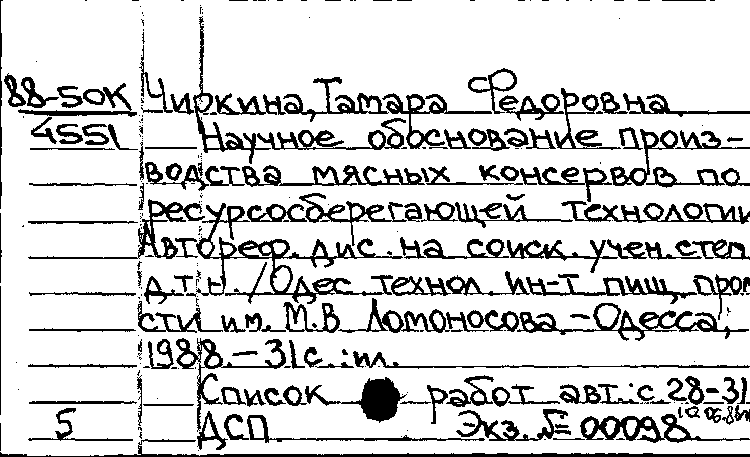 88-50К Чиркина, Тамара Федоровна
4551 Научное обоснование произ-
водства мясных консервов по
ресурсосберегающей технологии
Автореф. дис. на соиск. учен. степ
д.т.н. /Одес. технол. ин-т пищ. пром
сти им. М.В Ломоносова. - Одесса,
1988. - 31с.: ил.
Список работ авт.: с 28-31
5 ДСП. Экз. № 00098.